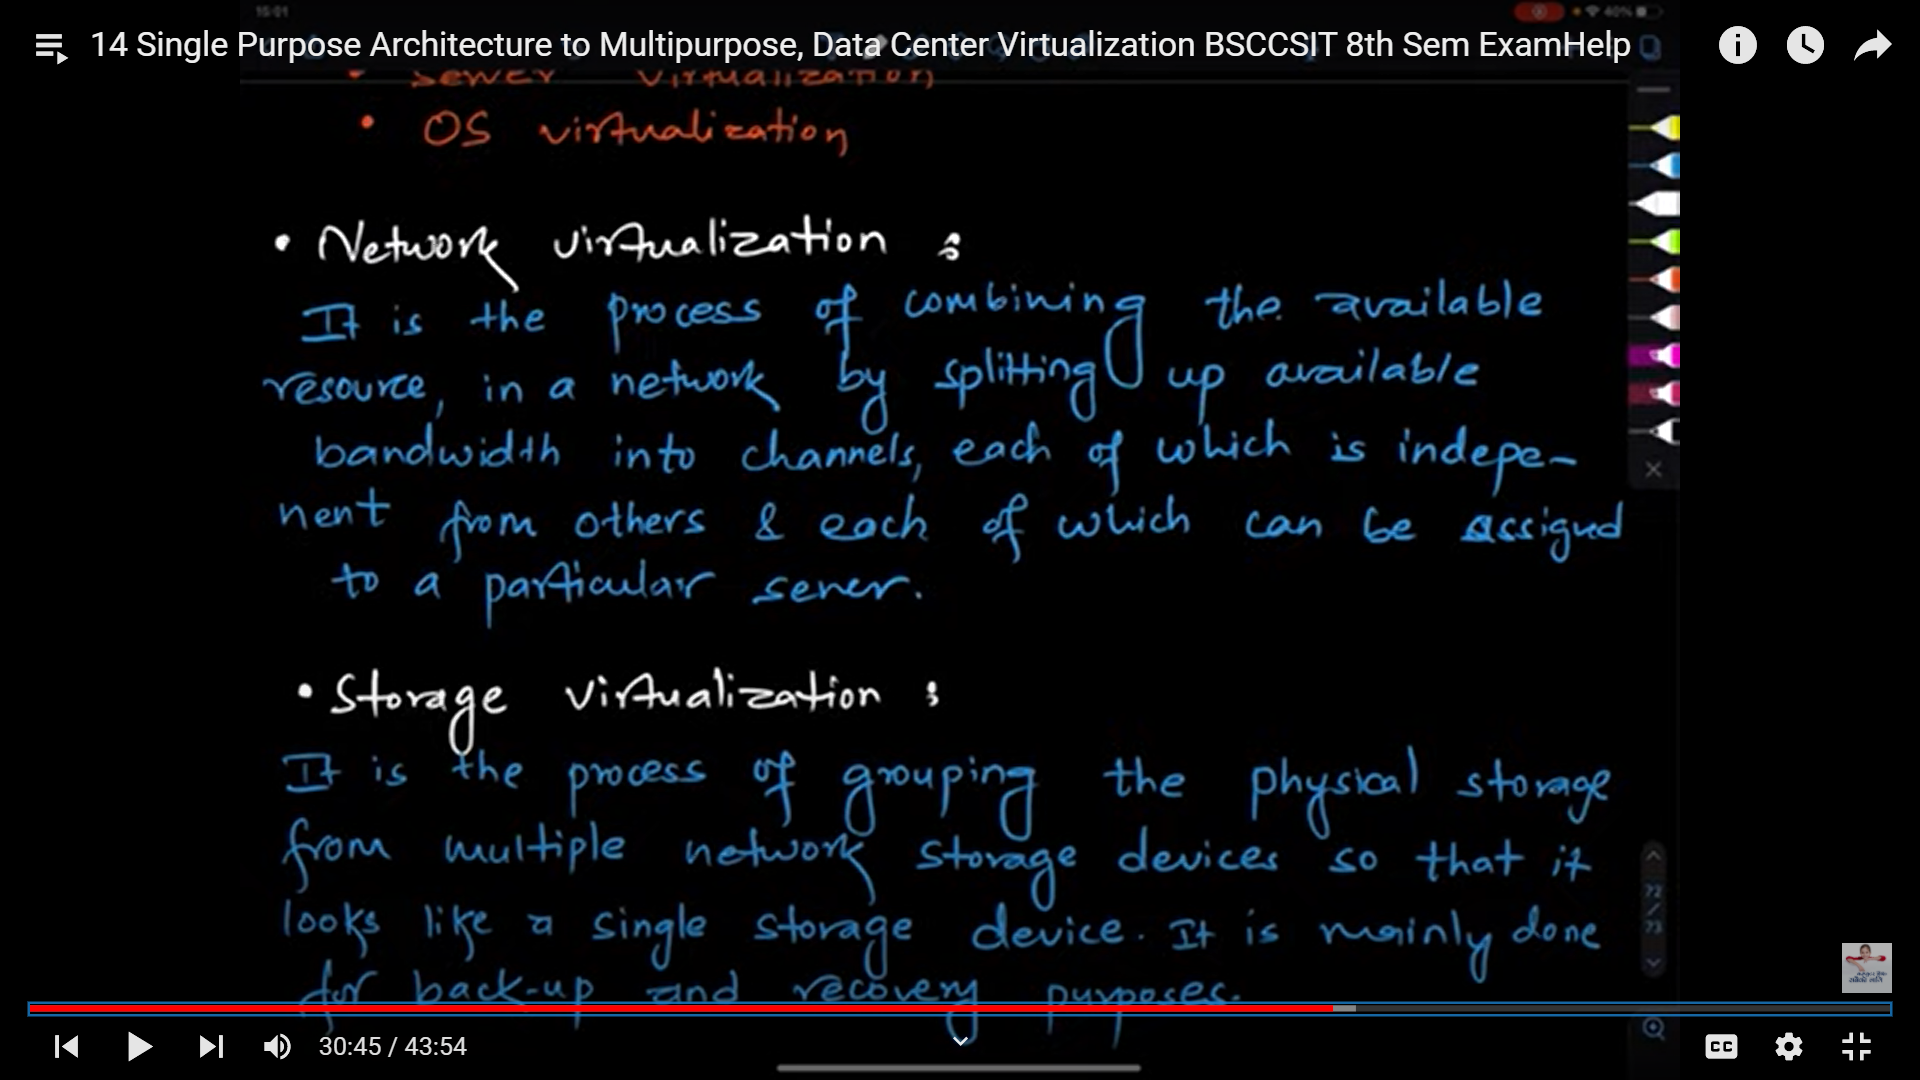 15:01
40%
14 Single Purpose Architecture to Multipurpose, Data Center Virtualization BSCCSIT 8th Sem ExamHelp
• Server virtualization
• OS virtualization
• Network virtualization :
It is the process of combining the available
resource, in a network by splitting up available
bandwidth into channels, each of which is indepe-
nent from others & each of which can be assigned
to a particular server.
• Storage virtualization :
It is the process of grouping the physical storage
from multiple network storage devices so that it
looks like a single storage device. It is mainly done
for back-up and recovery purposes.
72
/
73
30:45 / 43:54
CC